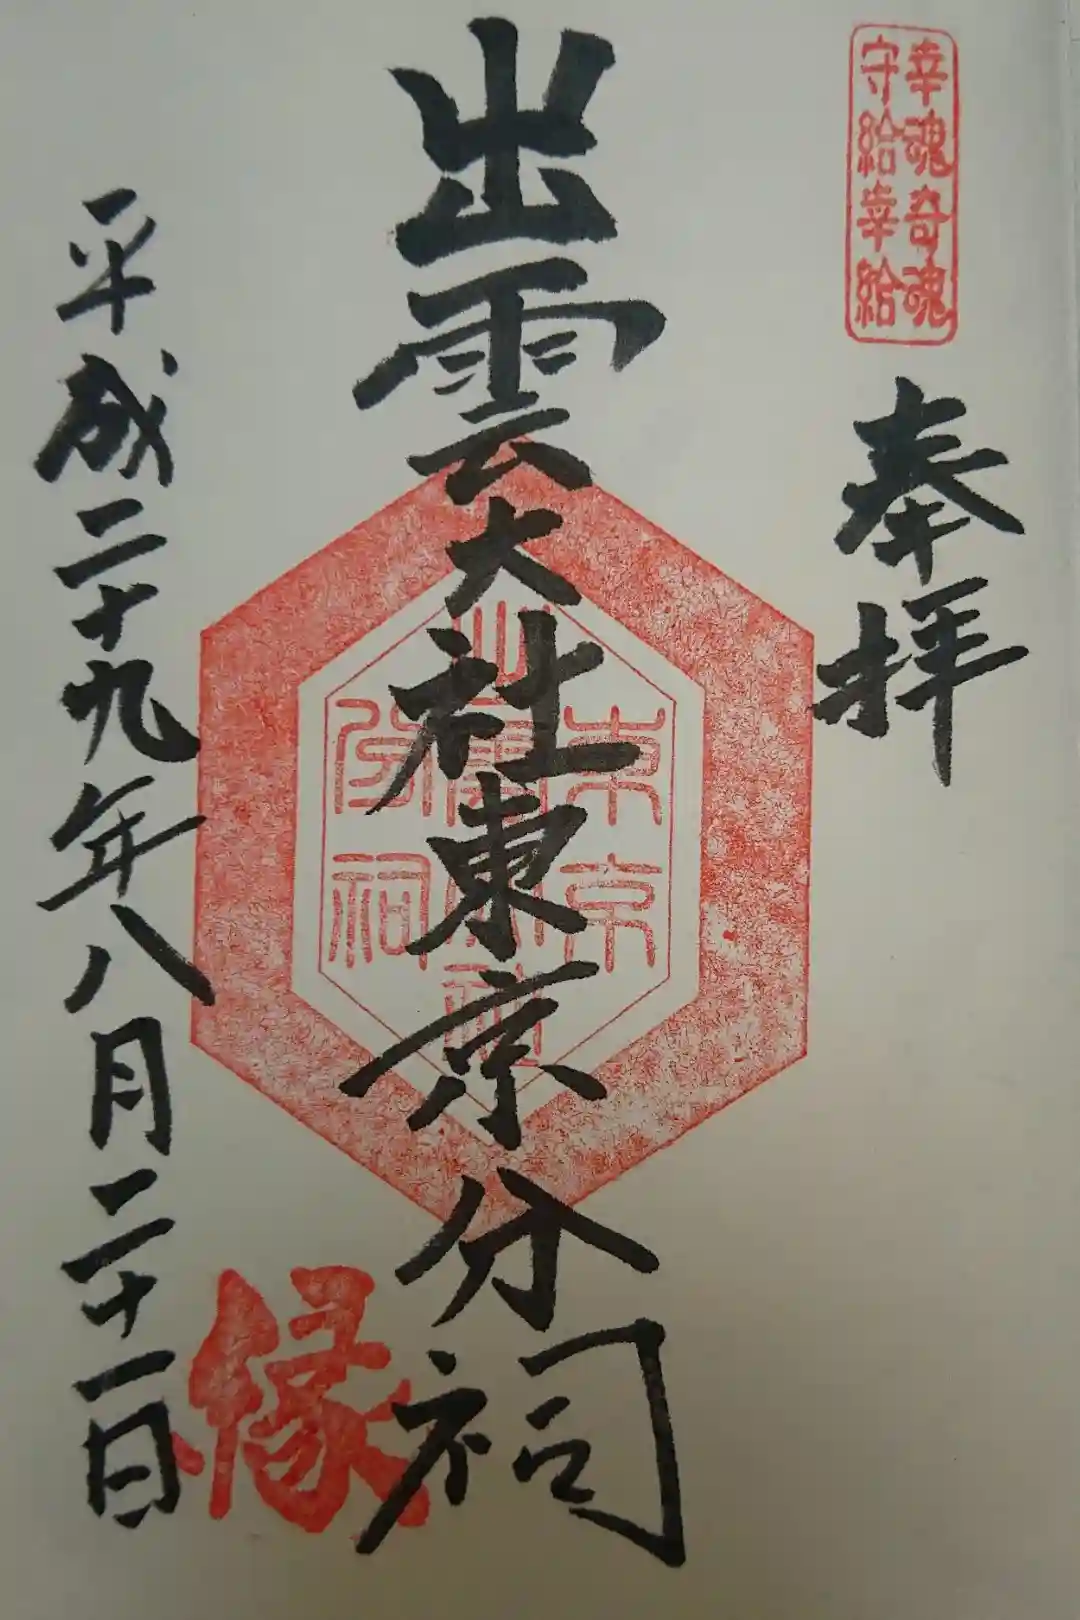 幸魂奇魂
守給幸給
奉拝
出雲大社東京分祠
東京
出雲大社
分祠
縁
平成二十九年八月二十一日